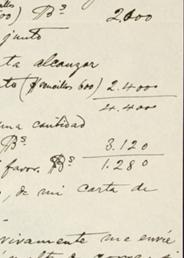 600) Bs 2600
junto
ta alcanzar
to (sencillos 600) 2.400
4.400
una cantidad
Bs 3.120
favor. Bs 1.280
, de mi carta de
vivamente me envíe